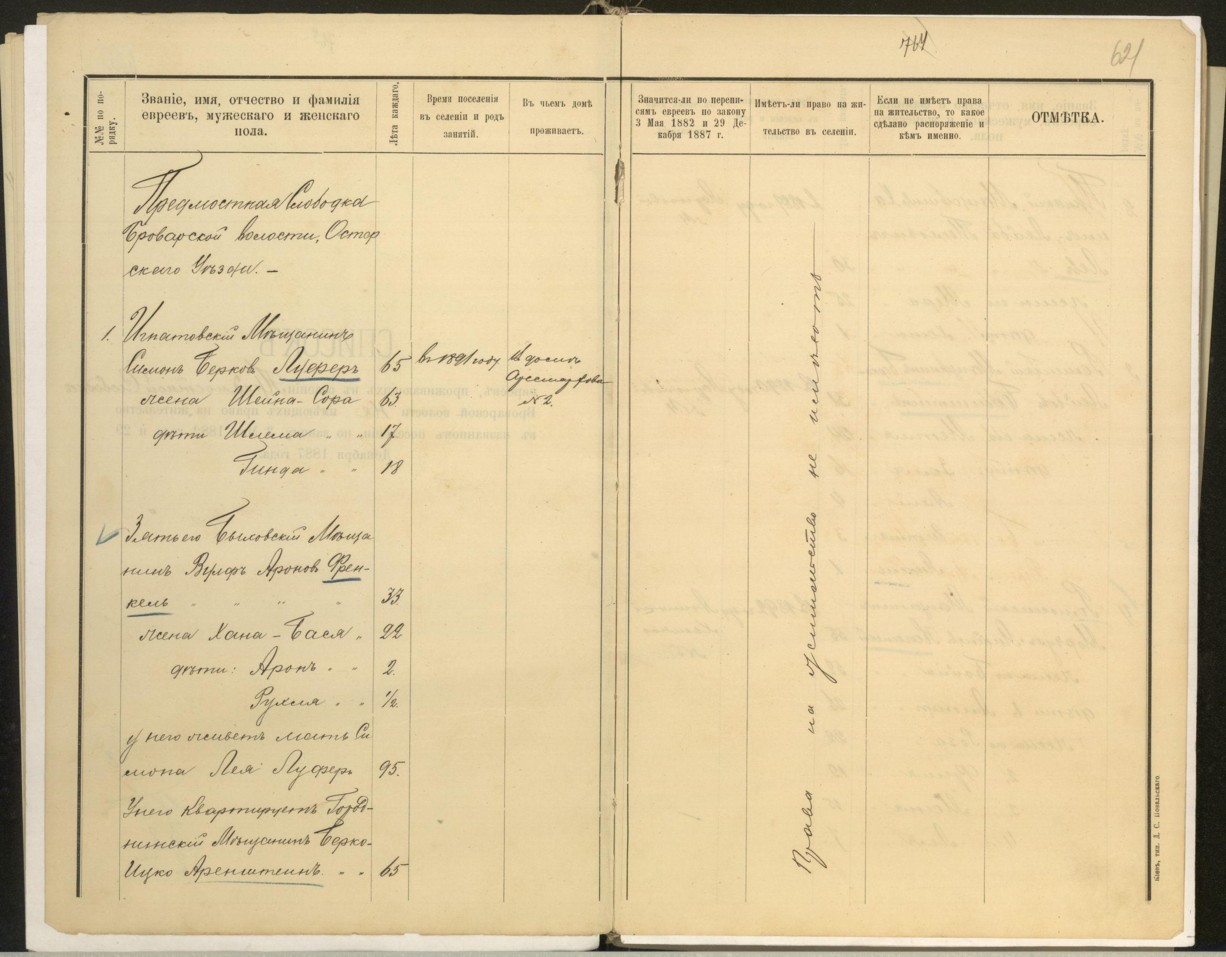 764
621
№№ по по-
рядку.
Званіе, имя, отчество и фамилія
евреевъ, мужескаго и женскаго
пола.
Лѣта каждаго.
Время поселенія
въ селеніи и родъ
занятій.
Въ чьемъ домѣ
проживаетъ.
Значится-ли по перепи-
сямъ евреевъ по закону
3 Мая 1882 и 29 Де-
кабря 1887 г.
Имѣетъ-ли право на жи-
тельство въ селеніи.
Если не имѣетъ права
на жительство, то какое
сдѣлано распоряженіе и
кѣмъ именно.
ОТМѢТКА.
Предмостная Слободка
Броварской волости, Остер
скаго Уѣзда. —
1. Игнатовскій Мѣщанинъ
Симонъ Берковъ Луферъ 65 въ 1891 году въ домѣ
жена Шейна-Сора 63 № 2.
дѣти Шлема " " 17
Гинда " " 18
Зять его Быловскій Мѣща
нинъ Вульфъ Ароновъ Френ-
кель " " " " 33
жена Хана - Бася " 22
дѣти: Аронъ " " 2.
Рухля " " 1/2
у него живетъ мать Си
мона Лея Луферъ 95.
У него квартируетъ Город-
нинскій Мѣщанинъ Берко-
Ицко Аренштейнъ " " 65
Права на жительство не имѣютъ
Кіевъ, тип. Д. С. Повальскаго